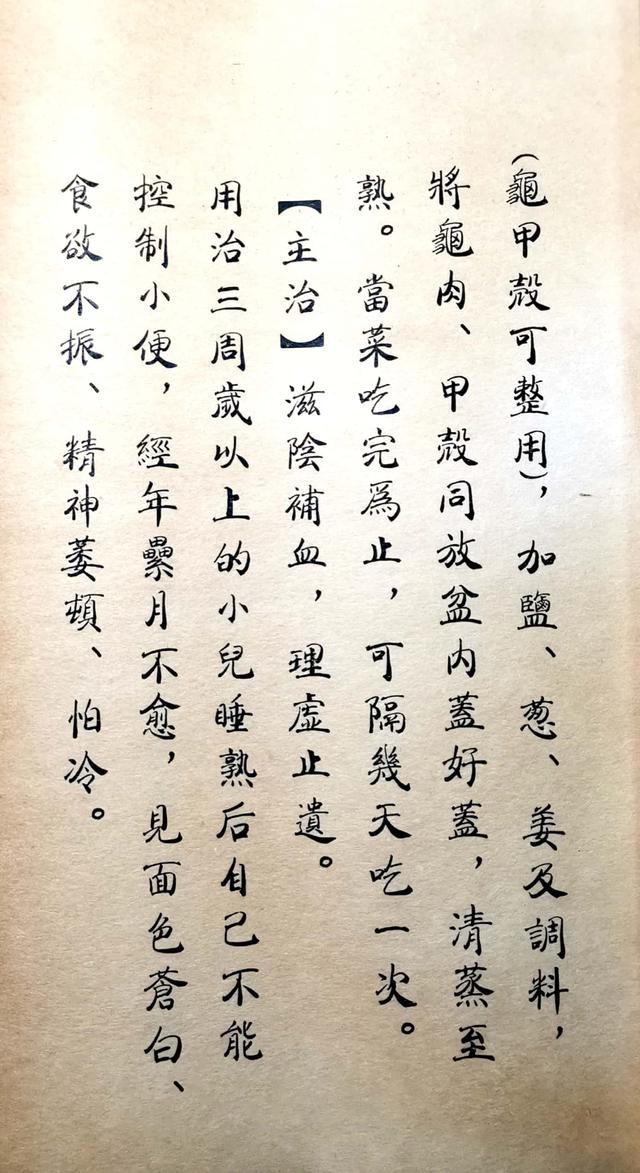 (龜甲殼可整用)，加鹽、葱、姜及調料，
將龜肉、甲殼同放盆内蓋好蓋，清蒸至
熟。當菜吃完爲止，可隔幾天吃一次。
【主治】滋陰補血，理虛止遺。
用治三周歲以上的小兒睡熟后自己不能
控制小便，經年纍月不愈，見面色蒼白、
食欲不振、精神萎頓、怕冷。